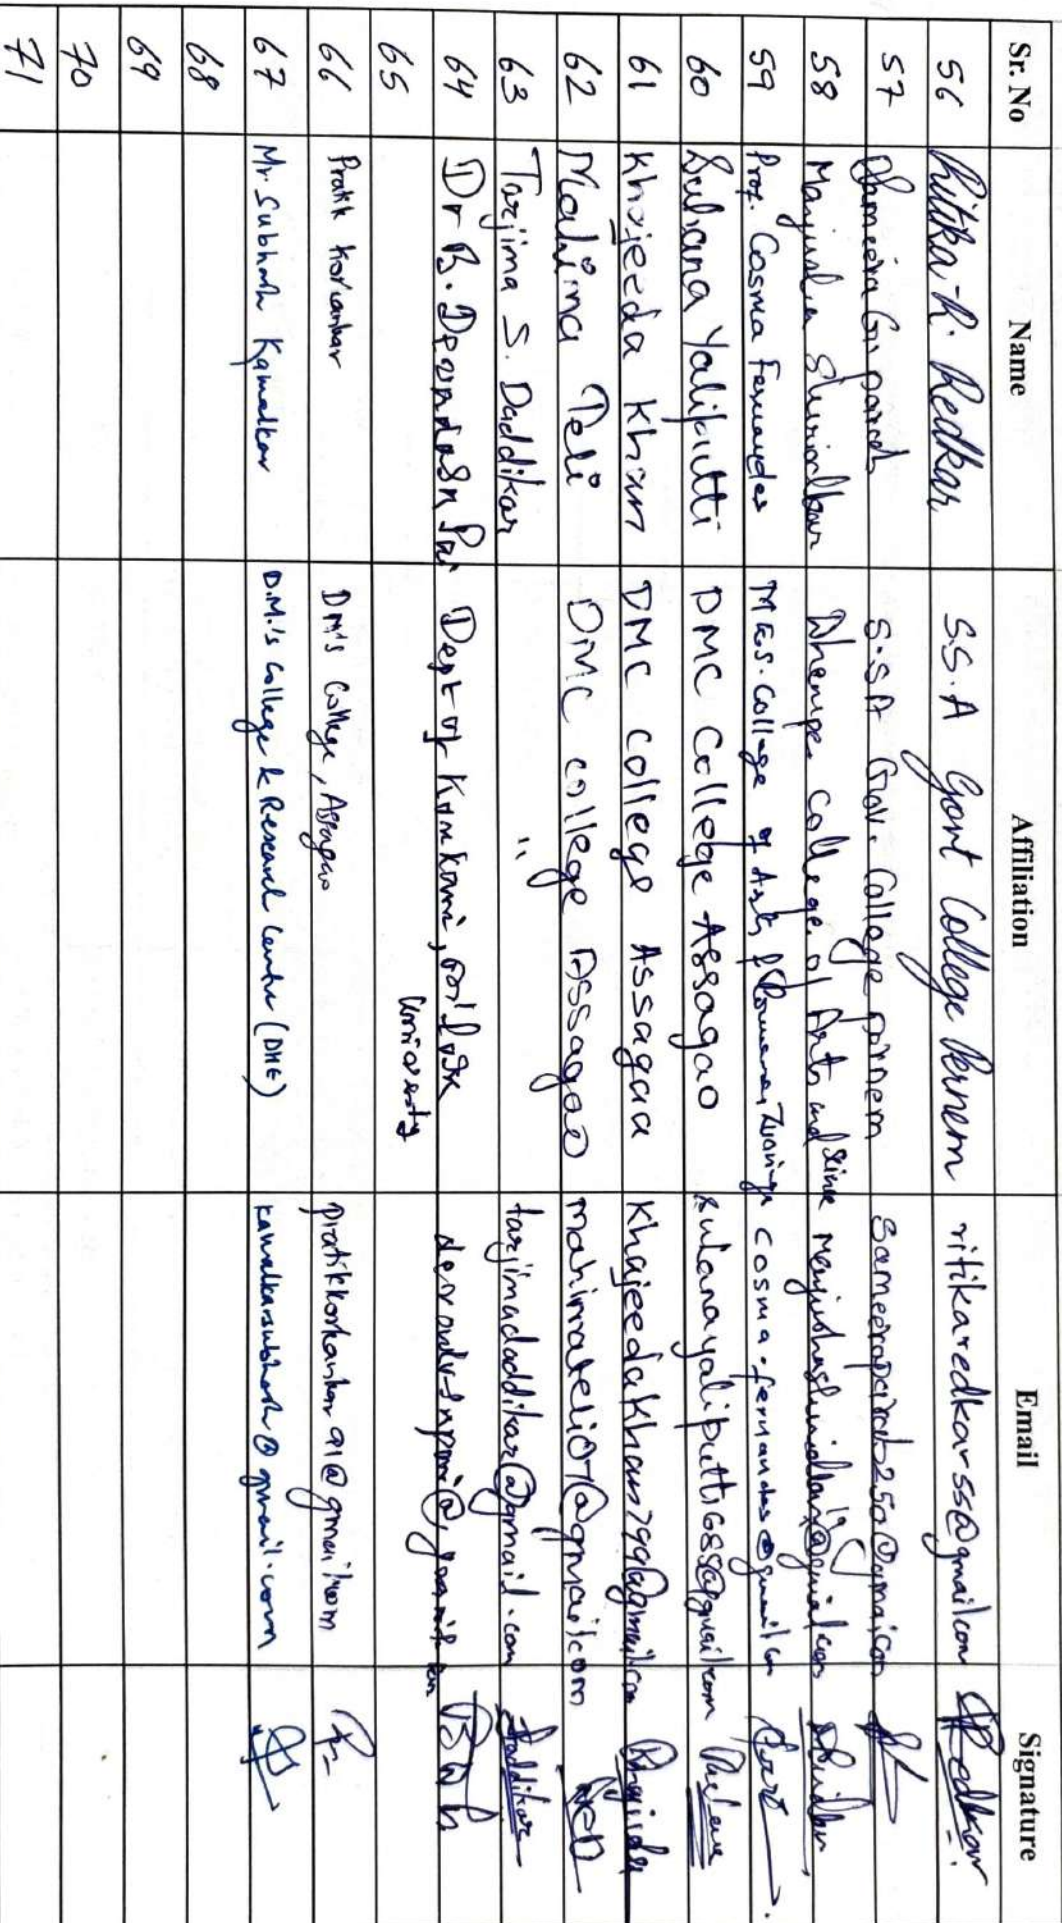 Sr. No Name Affiliation Email Signature
56 Ritika. R. Redkar S.S.A Govt College Pernem ritikaredkarss@gmail.com Redkar
57 Sameera G. parab S.S.A Gov. College pernem
58 Manjusha Dhempe College of Arts and Science
59 Prof. Cosma Fernandes MES. College of Arts & Commerce, Zuarinagar cosma.fernandes@gmail.com
60 Sulana Yaliputti DMC College Assagao sulanayaliputti688@gmail.com
61 Khajeeda Khan DMC College Assagaa khajeedakhan799@gmail.com
62 Mahima Teli DMC college Assagao mahimateli07@gmail.com
63 Tarjima S. Daddikar " tarjimadaddikar@gmail.com Daddikar
64 Dr B. Devadasn Pai Dept of Konkani,
65 University
66 Pratik Korkankar DM's College, Assagao pratikkorkankar91@gmail.com
67 Mr. Subhash Kamalkar D.M.'s College & Research Centre (DHE) kamalkarsubhash@gmail.com
68
69
70
71